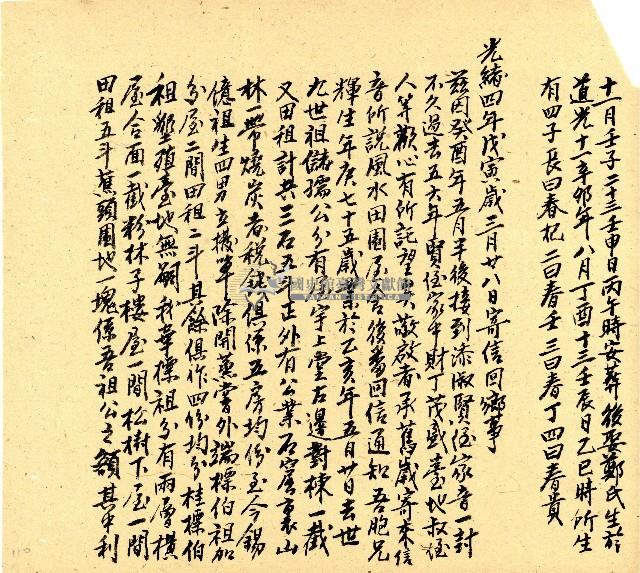 十一月壬子二十三壬申日丙午時安葬後娶鄭氏生於
道光十一辛卯年八月丁酉十三壬辰日乙巳時所生
有四子長曰春杞二曰春壬三曰春丁四曰春貴
光緒四年戊寅歲三月廿八日寄信回鄉事
茲因癸酉年五月半後接到添淑賢侄家音一封
不久過去五六年賢侄家中財丁茂盛臺地叔侄
人等歡心有所託望矣敬啟者承舊歲寄來信
音所說風水田園屋舍後畨回信通知吾胞兄
輝生年庚七十五歲於乙亥年五月廿日去世
九世祖儲孺公分有宇上堂左邊對棟一截
又田租計共三石五斗正外有公業石窖裏山
林一帶燒炭者稅錢俱係五房均份至今錫
億祖生四男立機單除開蒸嘗外端標伯祖加
分屋二間田租二斗其餘俱作四份均分桂標伯
祖塋殖臺地無嗣我華標祖分有兩層橫
屋合面一截粉林子樓屋一間松樹下屋一間
田租五斗蕉頭園地一塊係吾祖公之額其中利
國史館臺灣文獻館
110